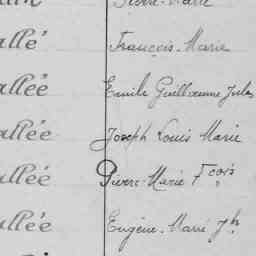 Pierre-Marie
allé François-Marie
allée Emile Guillaume Jules
allée Joseph Louis Marie
allée Pierre-Marie Fçois
allée Eugène-Marie Jh